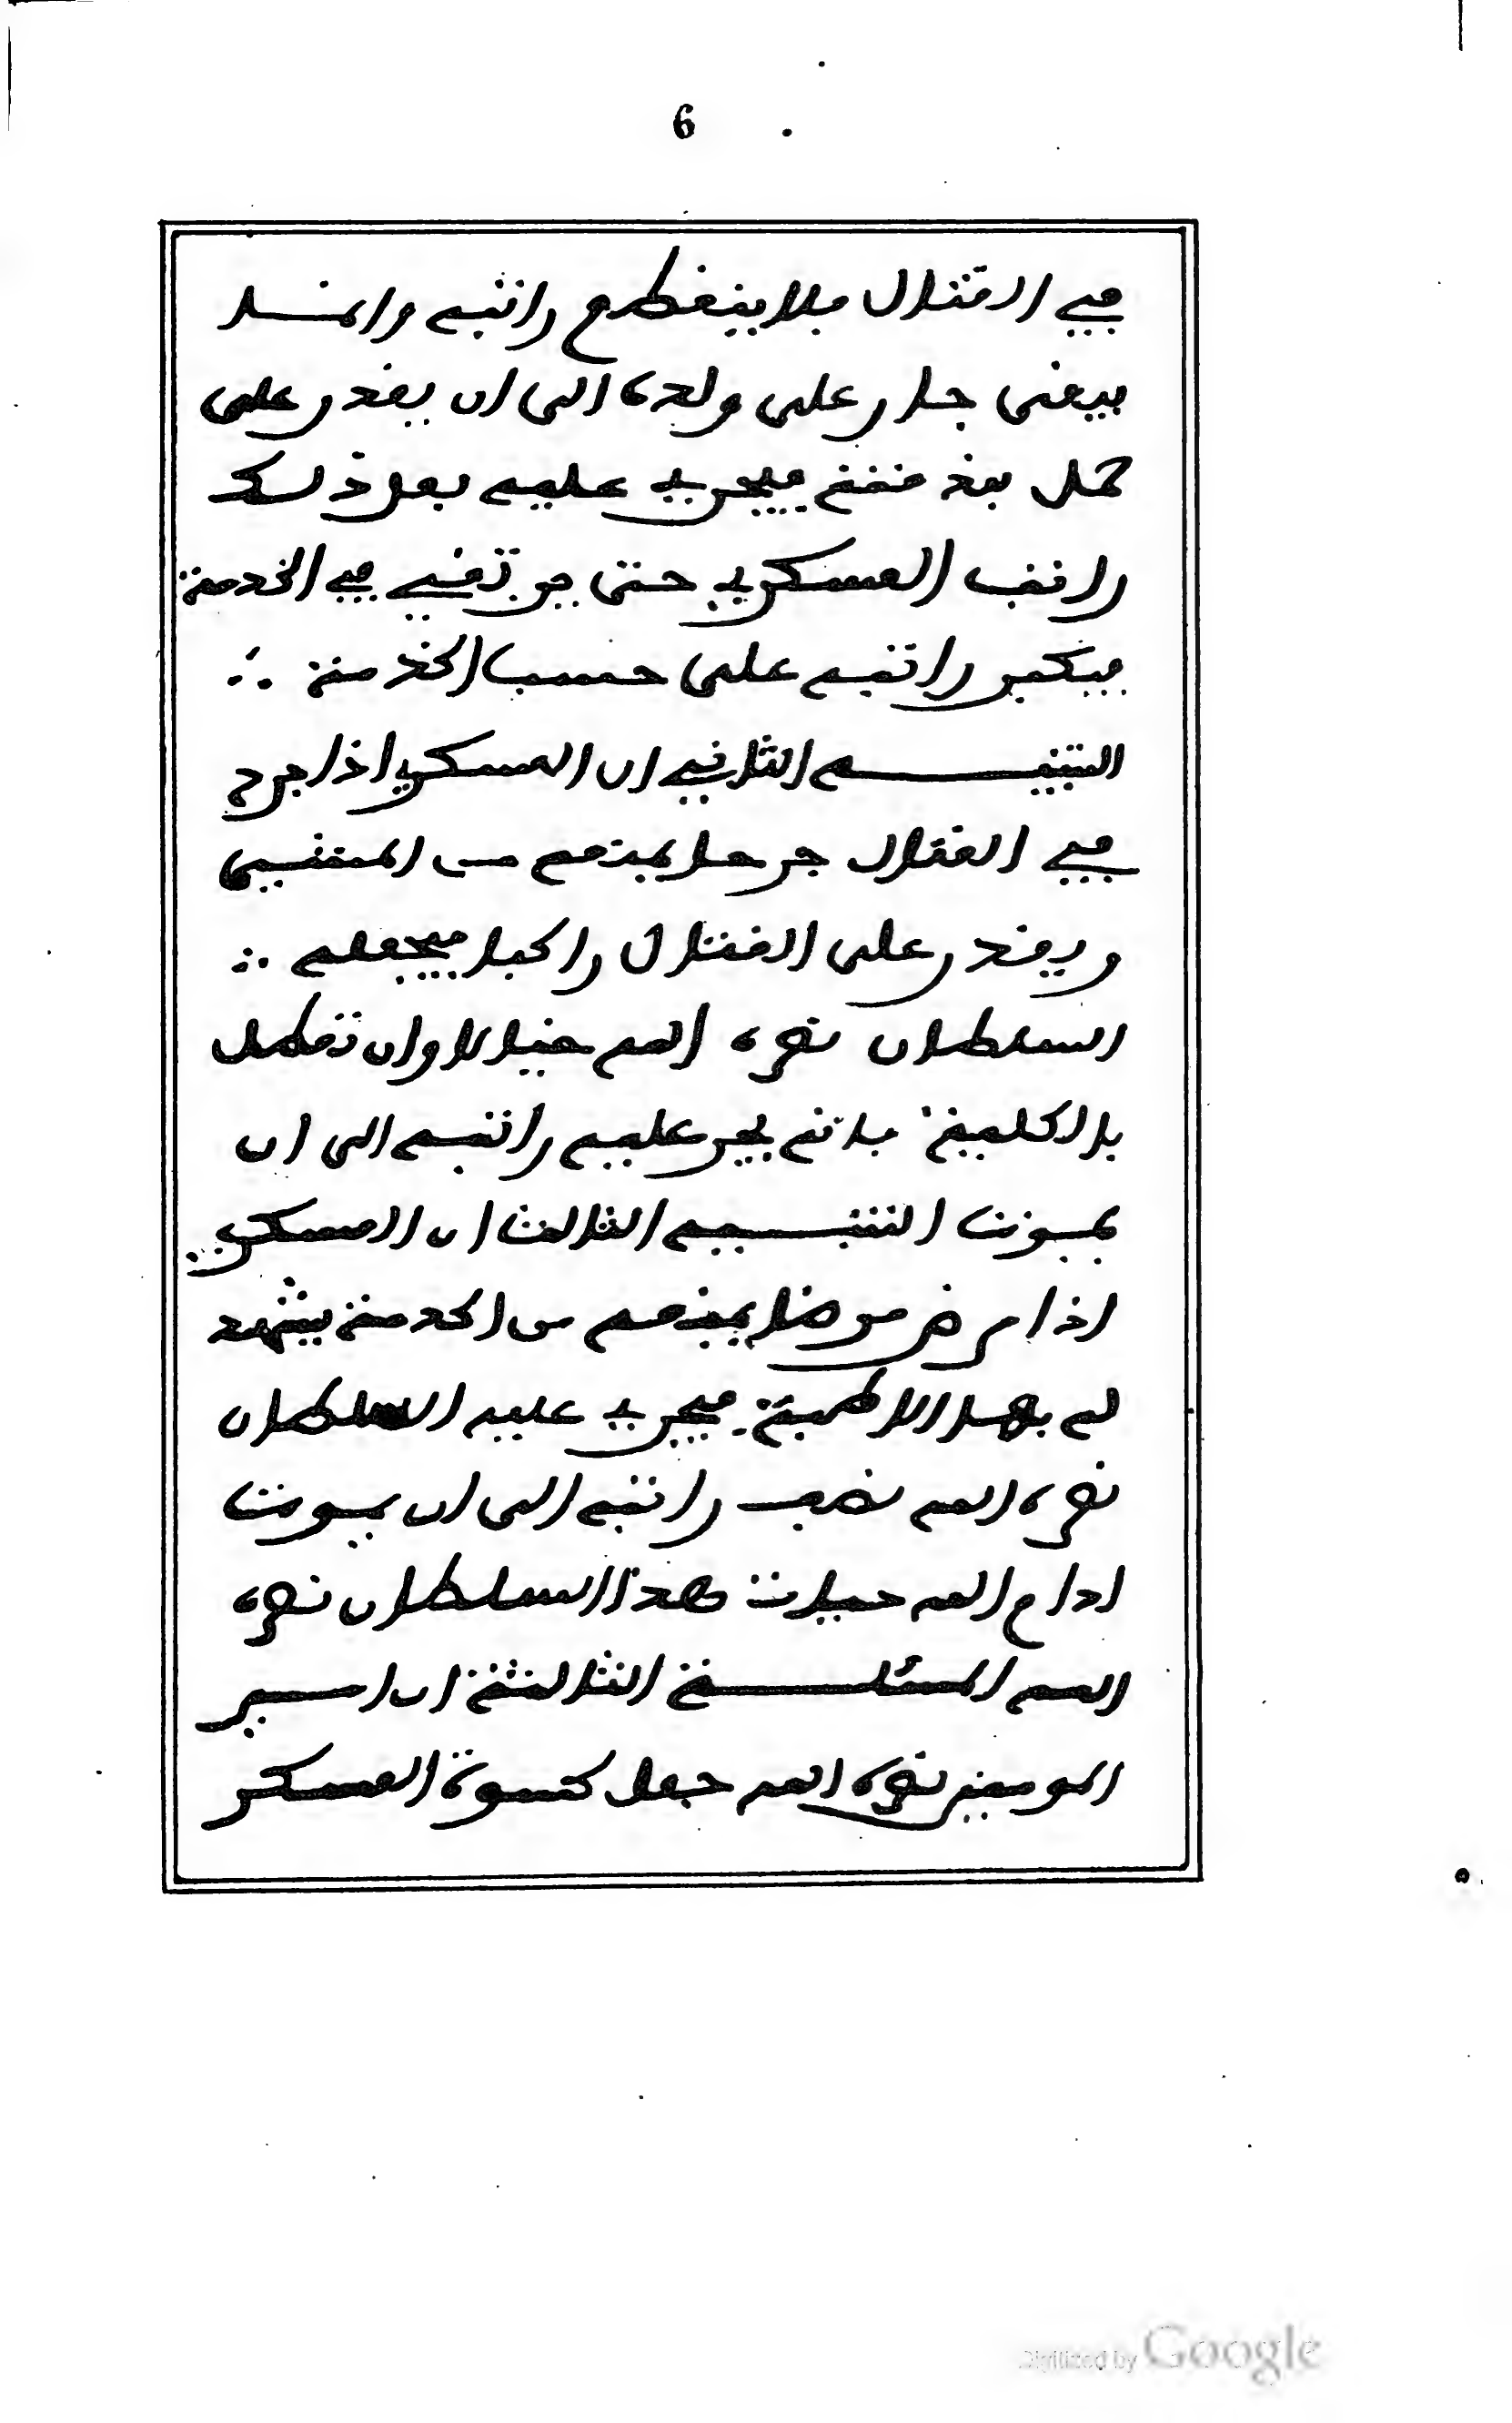 6
في القتال فلا ينقطع راتبه وانما
يبقى جار على ولده الى ان يقدر على
حمل بندقته فيجري عليه بعد ذلك
راتب العسكري حتى يرتقي في الخدمة
فيكبر راتبه على حسب الخدمة ∴
التنبيه الثاني ان العسكري اذا جرح
في القتال جرحا يمنعه من المشي
ويقدر على القتال راكبا فيجعله ∴
السلطان نصره الله خيالا وان تعطل
بالكلية فانه يجر عليه راتبه الى ان
يموت التنبيه الثالث ان العسكري
اذا مرض مرضا يمنعه من الخدمة يشهد
له بها الاطبة فيجري عليه السلطان
نصره الله نصف راتبه الى ان يموت
ادام الله حيات هذا السلطان نصره
الله المسئلة الثالثة ان امير
المومنين نصره الله جعل كسوة العسكر
Digitized by Google